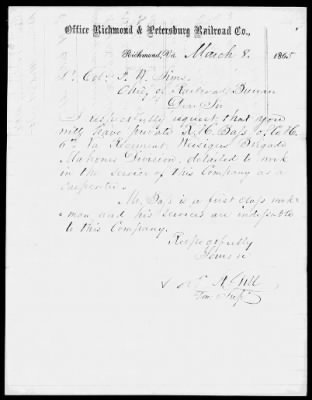 Office Richmond & Petersburg Railroad Co.,
Richmond, Va. March 8. 1865
Lt Col. F. W. Sims
Chief of Railroad Bureau
I respectfully request that you
will have private R. H. Bass of Co. C.
6th Va Regiment, Weisiger Brigade
Mahones Division, detailed to work
in the service of this Company as a
Carpenter.
Mr. Bass is a first class work
man and his services are
to this Company.
Respectfully
Yours &c
Gill